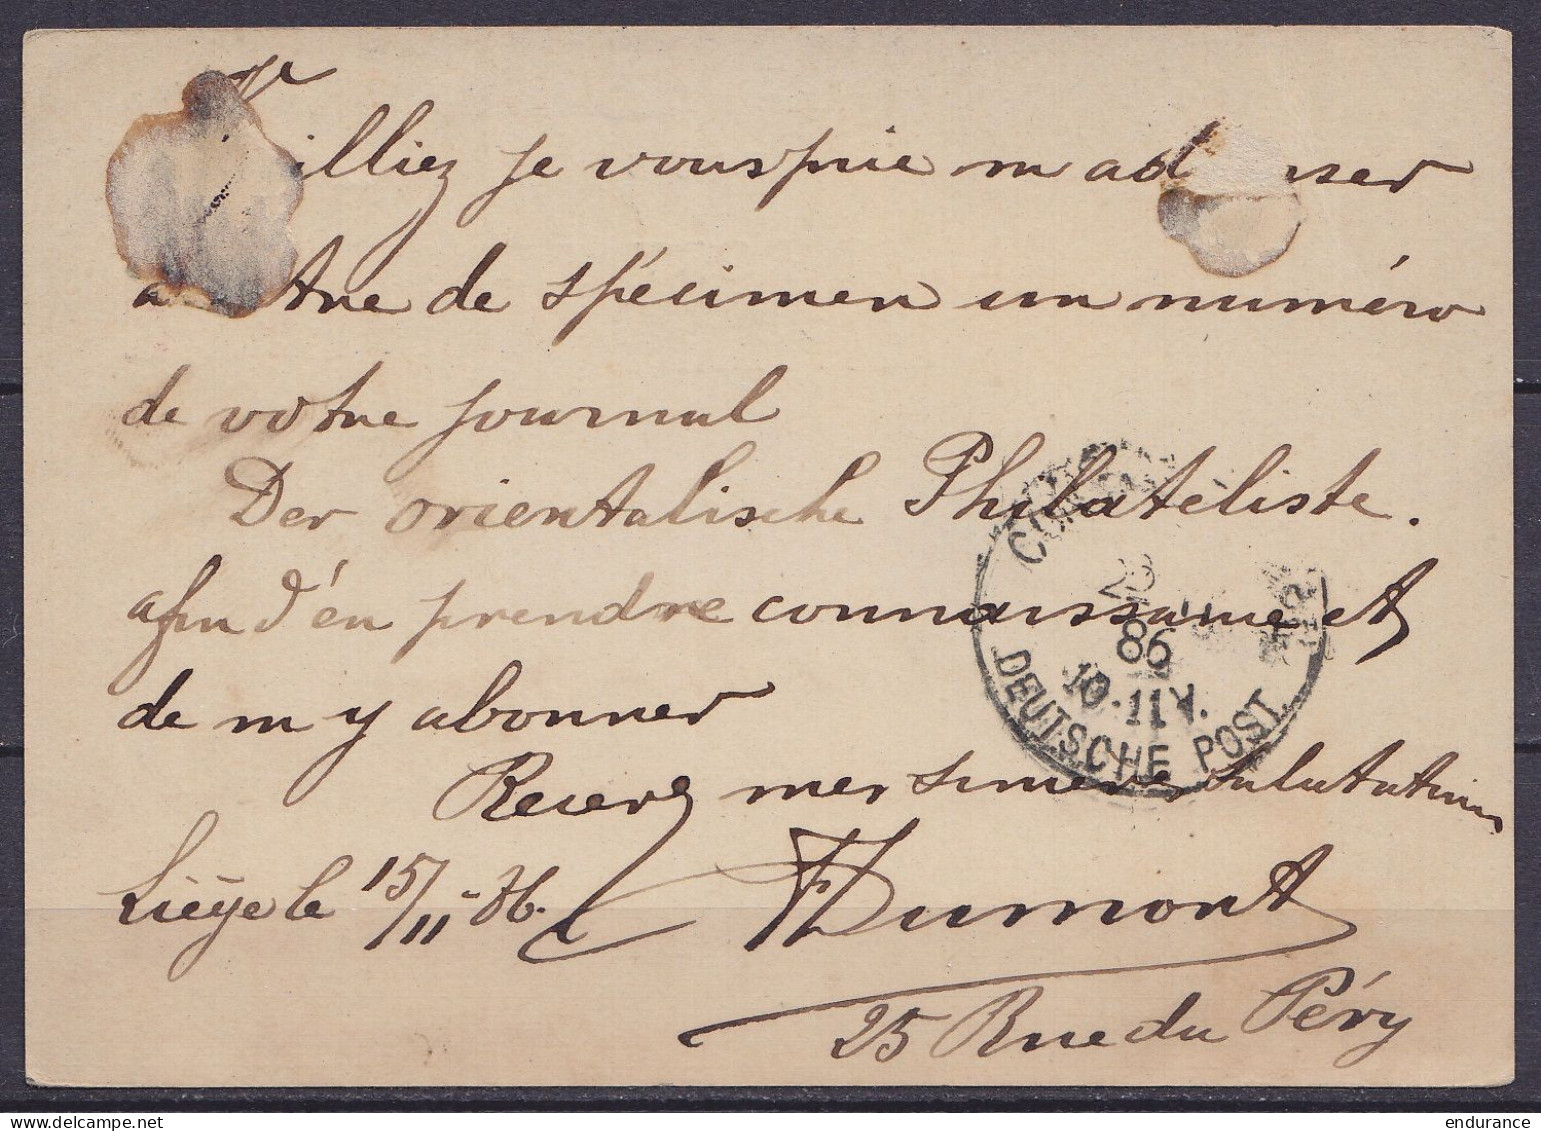 illiez je vous prie m'ad sser
a tre de spécimen un numéro
de votre journal
Der orientalische Philateliste.
afin d'en prendre connaissance et
de m'y abonner
Recevez mes sincères salutations
Liège le 15/11-86.
Dumont
25 Rue du Péry
CON
23
86
10-11 V.
DEUTSCHE POST
endurance